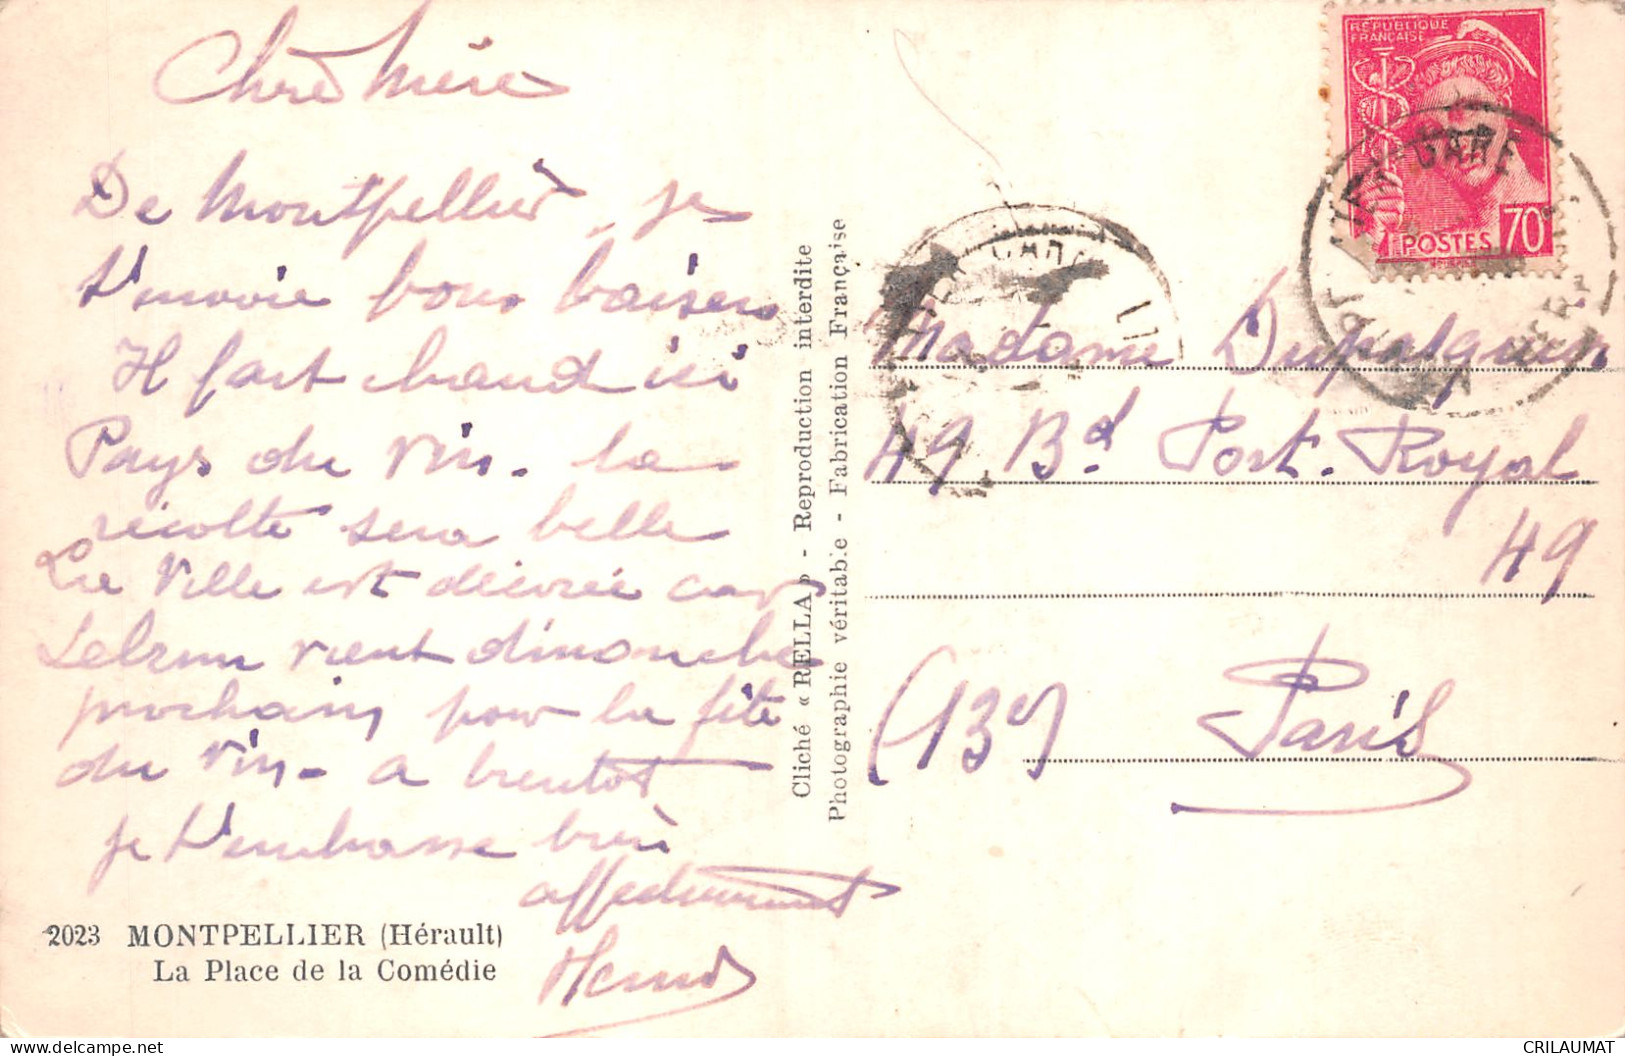 Chère Mère
De Montpellier je
t'envoie bons baisers
Il fait chaud ici
Pays du vin. la
récolte sera belle
La Ville est décorée car
Lebrun vient dimanche
prochain pour la fête
du vin - a bientot
je t'embrasse bien
affectueusement
2023 MONTPELLIER (Hérault)
La Place de la Comédie
Cliché « RELLA » - Reproduction interdite
Photographie véritable - Fabrication Française
RÉPUBLIQUE
FRANÇAISE
POSTES 70
GARE
GARE
Madame
49 Bd Port-Royal
49
(13e) Paris
CRILAUMAT